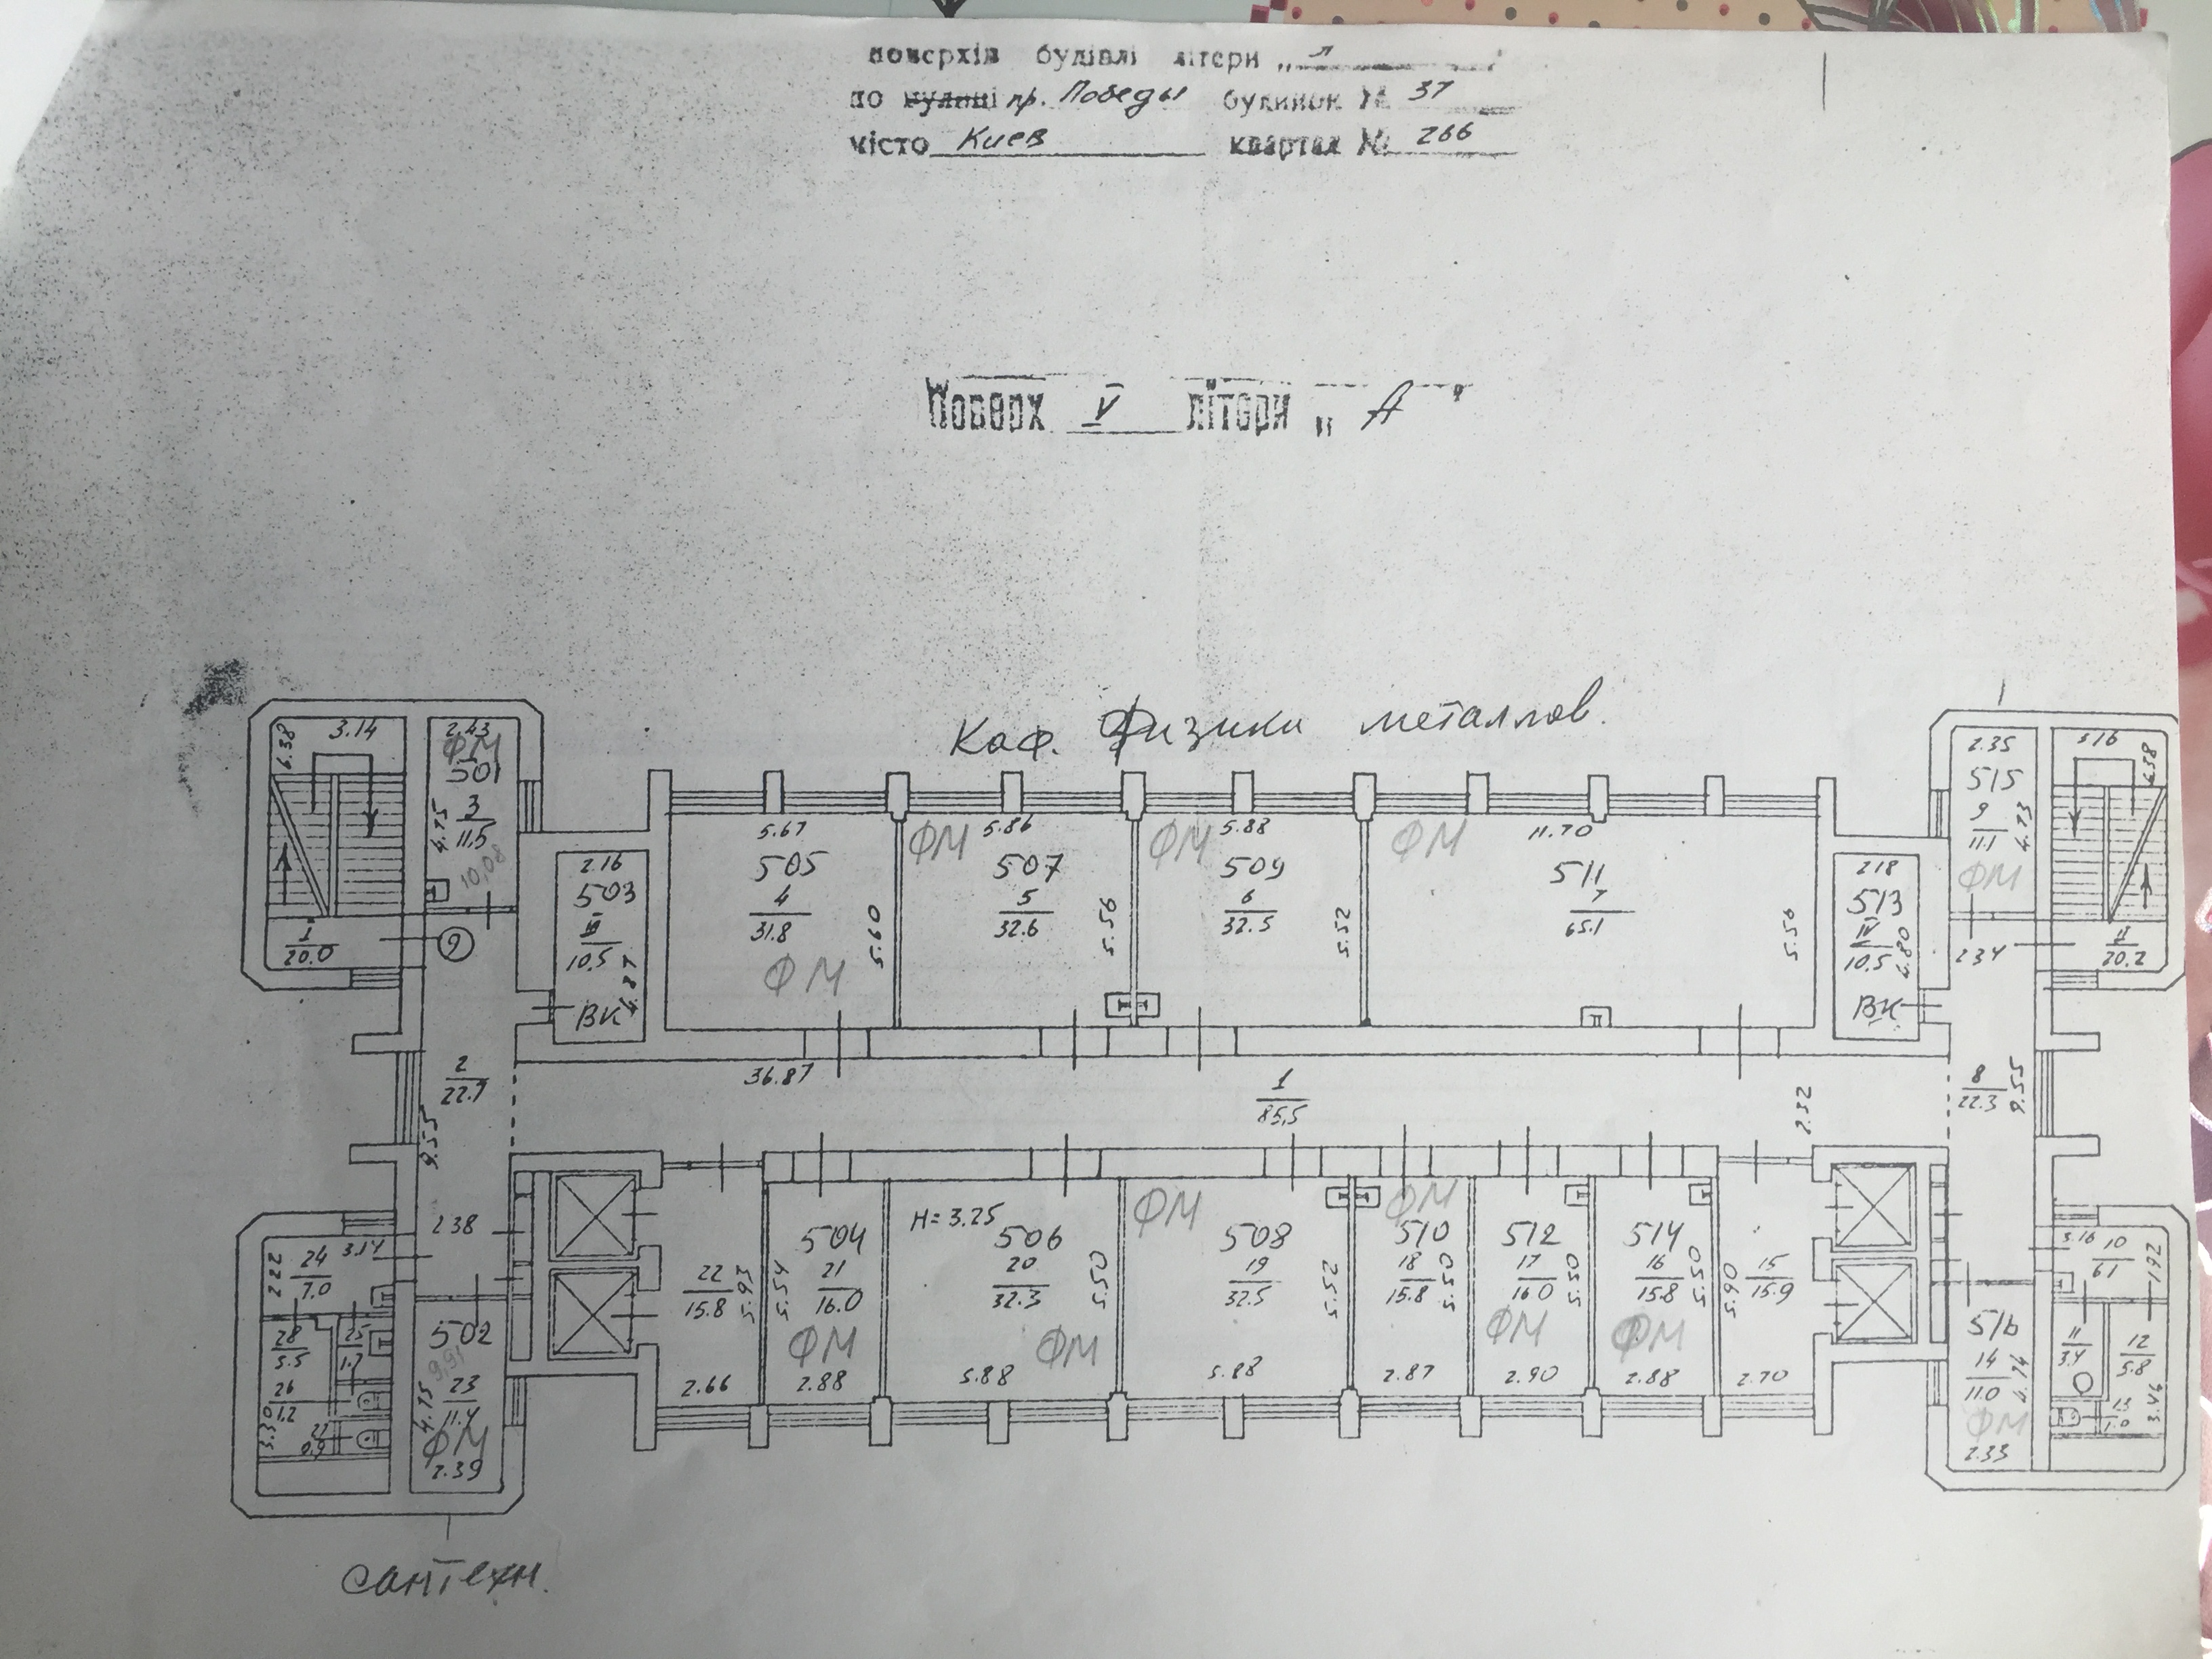 поверхів будівлі літери „
по вулиці пр. Победы будинок № 37
місто Киев квартал № 266
Поверх V літери „ А "
Каф. Физики металлов.
6.38 3.14
2.43
ФМ
501
3
11.5
4.75
10,08
I
20.0
2
2.16
503
III
10.5
4.87
ВК
5.67
505
4
31.8
5.60
ФМ
ФМ 5.86
507
5
32.6
5.56
ФМ 5.88
509
6
32.5
5.52
ФМ 11.70
511
7
65.1
5.56
2.18
513
IV
10.5
4.80
ВК
2.35
515
9
11.1
4.73
ФМ
2.34
5.16
6.38
II
20.2
2
22.7
9.55
36.87
1
85,5
2.32
8
22.3
9.55
2.38
24
7.0
3.14
2.22
28
5.5
25
1.7
26
1.2
27
0.9
3.30
502
9,91
23
11.4
4.75
ФМ
2.39
22
15.8
5.93
2.66
504
21
16.0
5.54
ФМ
2.88
H=3.25
506
20
32.3
5.50
ФМ
5.88
ФМ
508
19
32.5
5.52
5.88
ФМ
510
18
15.8
5.50
2.87
512
17
16.0
5.50
ФМ
2.90
514
16
15.8
5.50
ФМ
2.88
15
15.9
5.90
2.70
516
14
11.0
4.74
ФМ
2.33
5.16
10
6.1
1.92
11
3.4
12
5.8
13
1.0
3.46
сантехн.